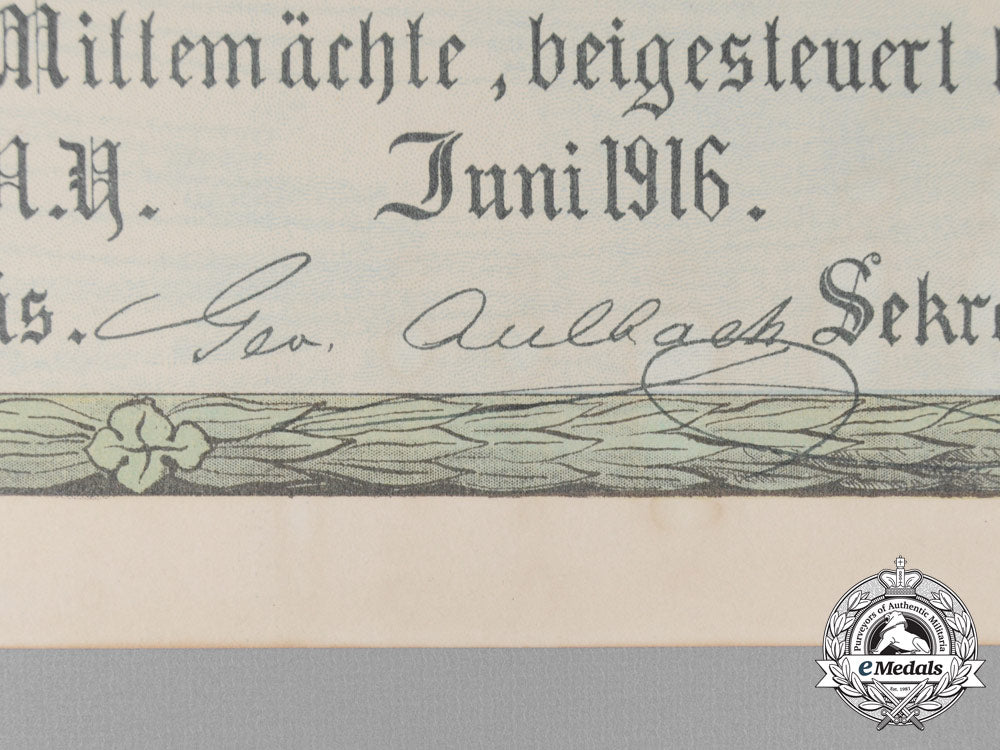 Mittemächte, beigesteuert
A.Y. Juni 1916.
äs. Geo. Aulbach Sekre
Purveyors of Authentic Militaria
eMedals
Est. 1987